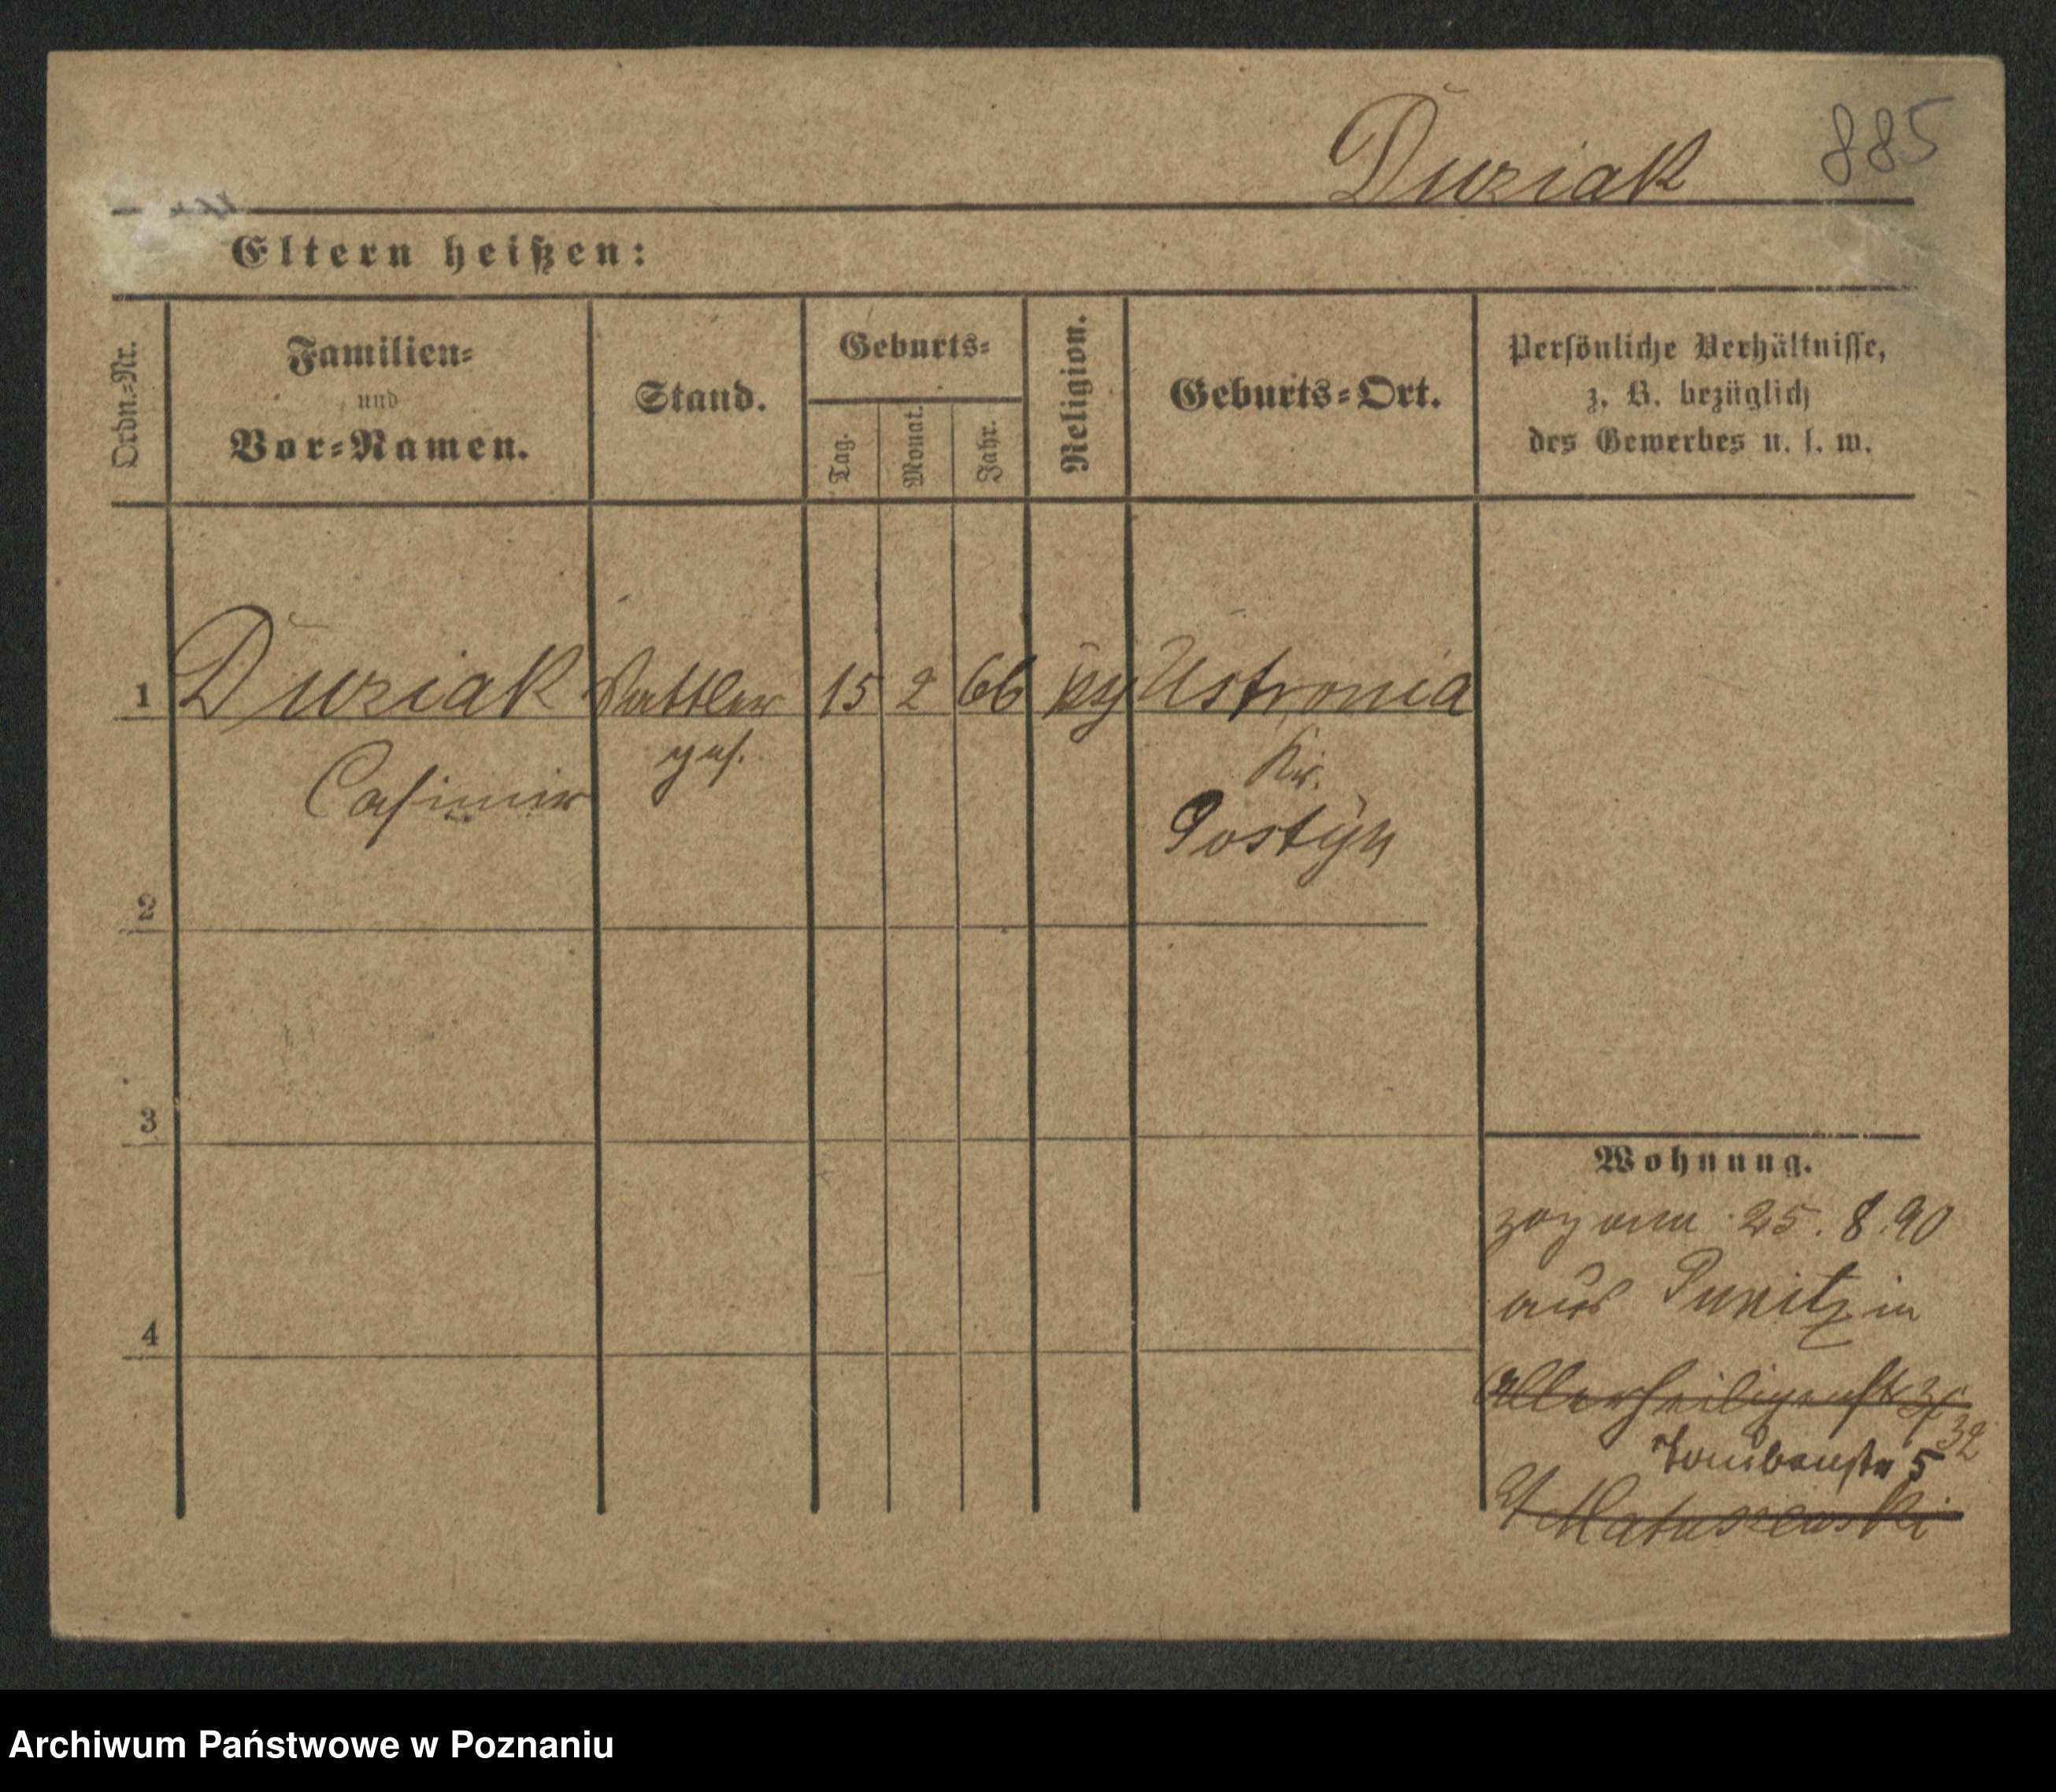 Duziak 885
Eltern heißen:
Ordn.=Nr.
Familien=
und
Vor=Namen.
Stand.
Geburts=
Tag.
Monat.
Jahr.
Religion.
Geburts=Ort.
Persönliche Verhältnisse,
z. B. bezüglich
des Gewerbes u. s. w.
1 Duziak Sattler 15 2 66 Ustronia
Casimir ges. Kr.
Gostÿn
2
3
4
Wohnung.
zog am 25. 8. 90
aus Punitz in
Allerheiligenstr
32
Taubenstr 5
Matuszewski
Archiwum Państwowe w Poznaniu